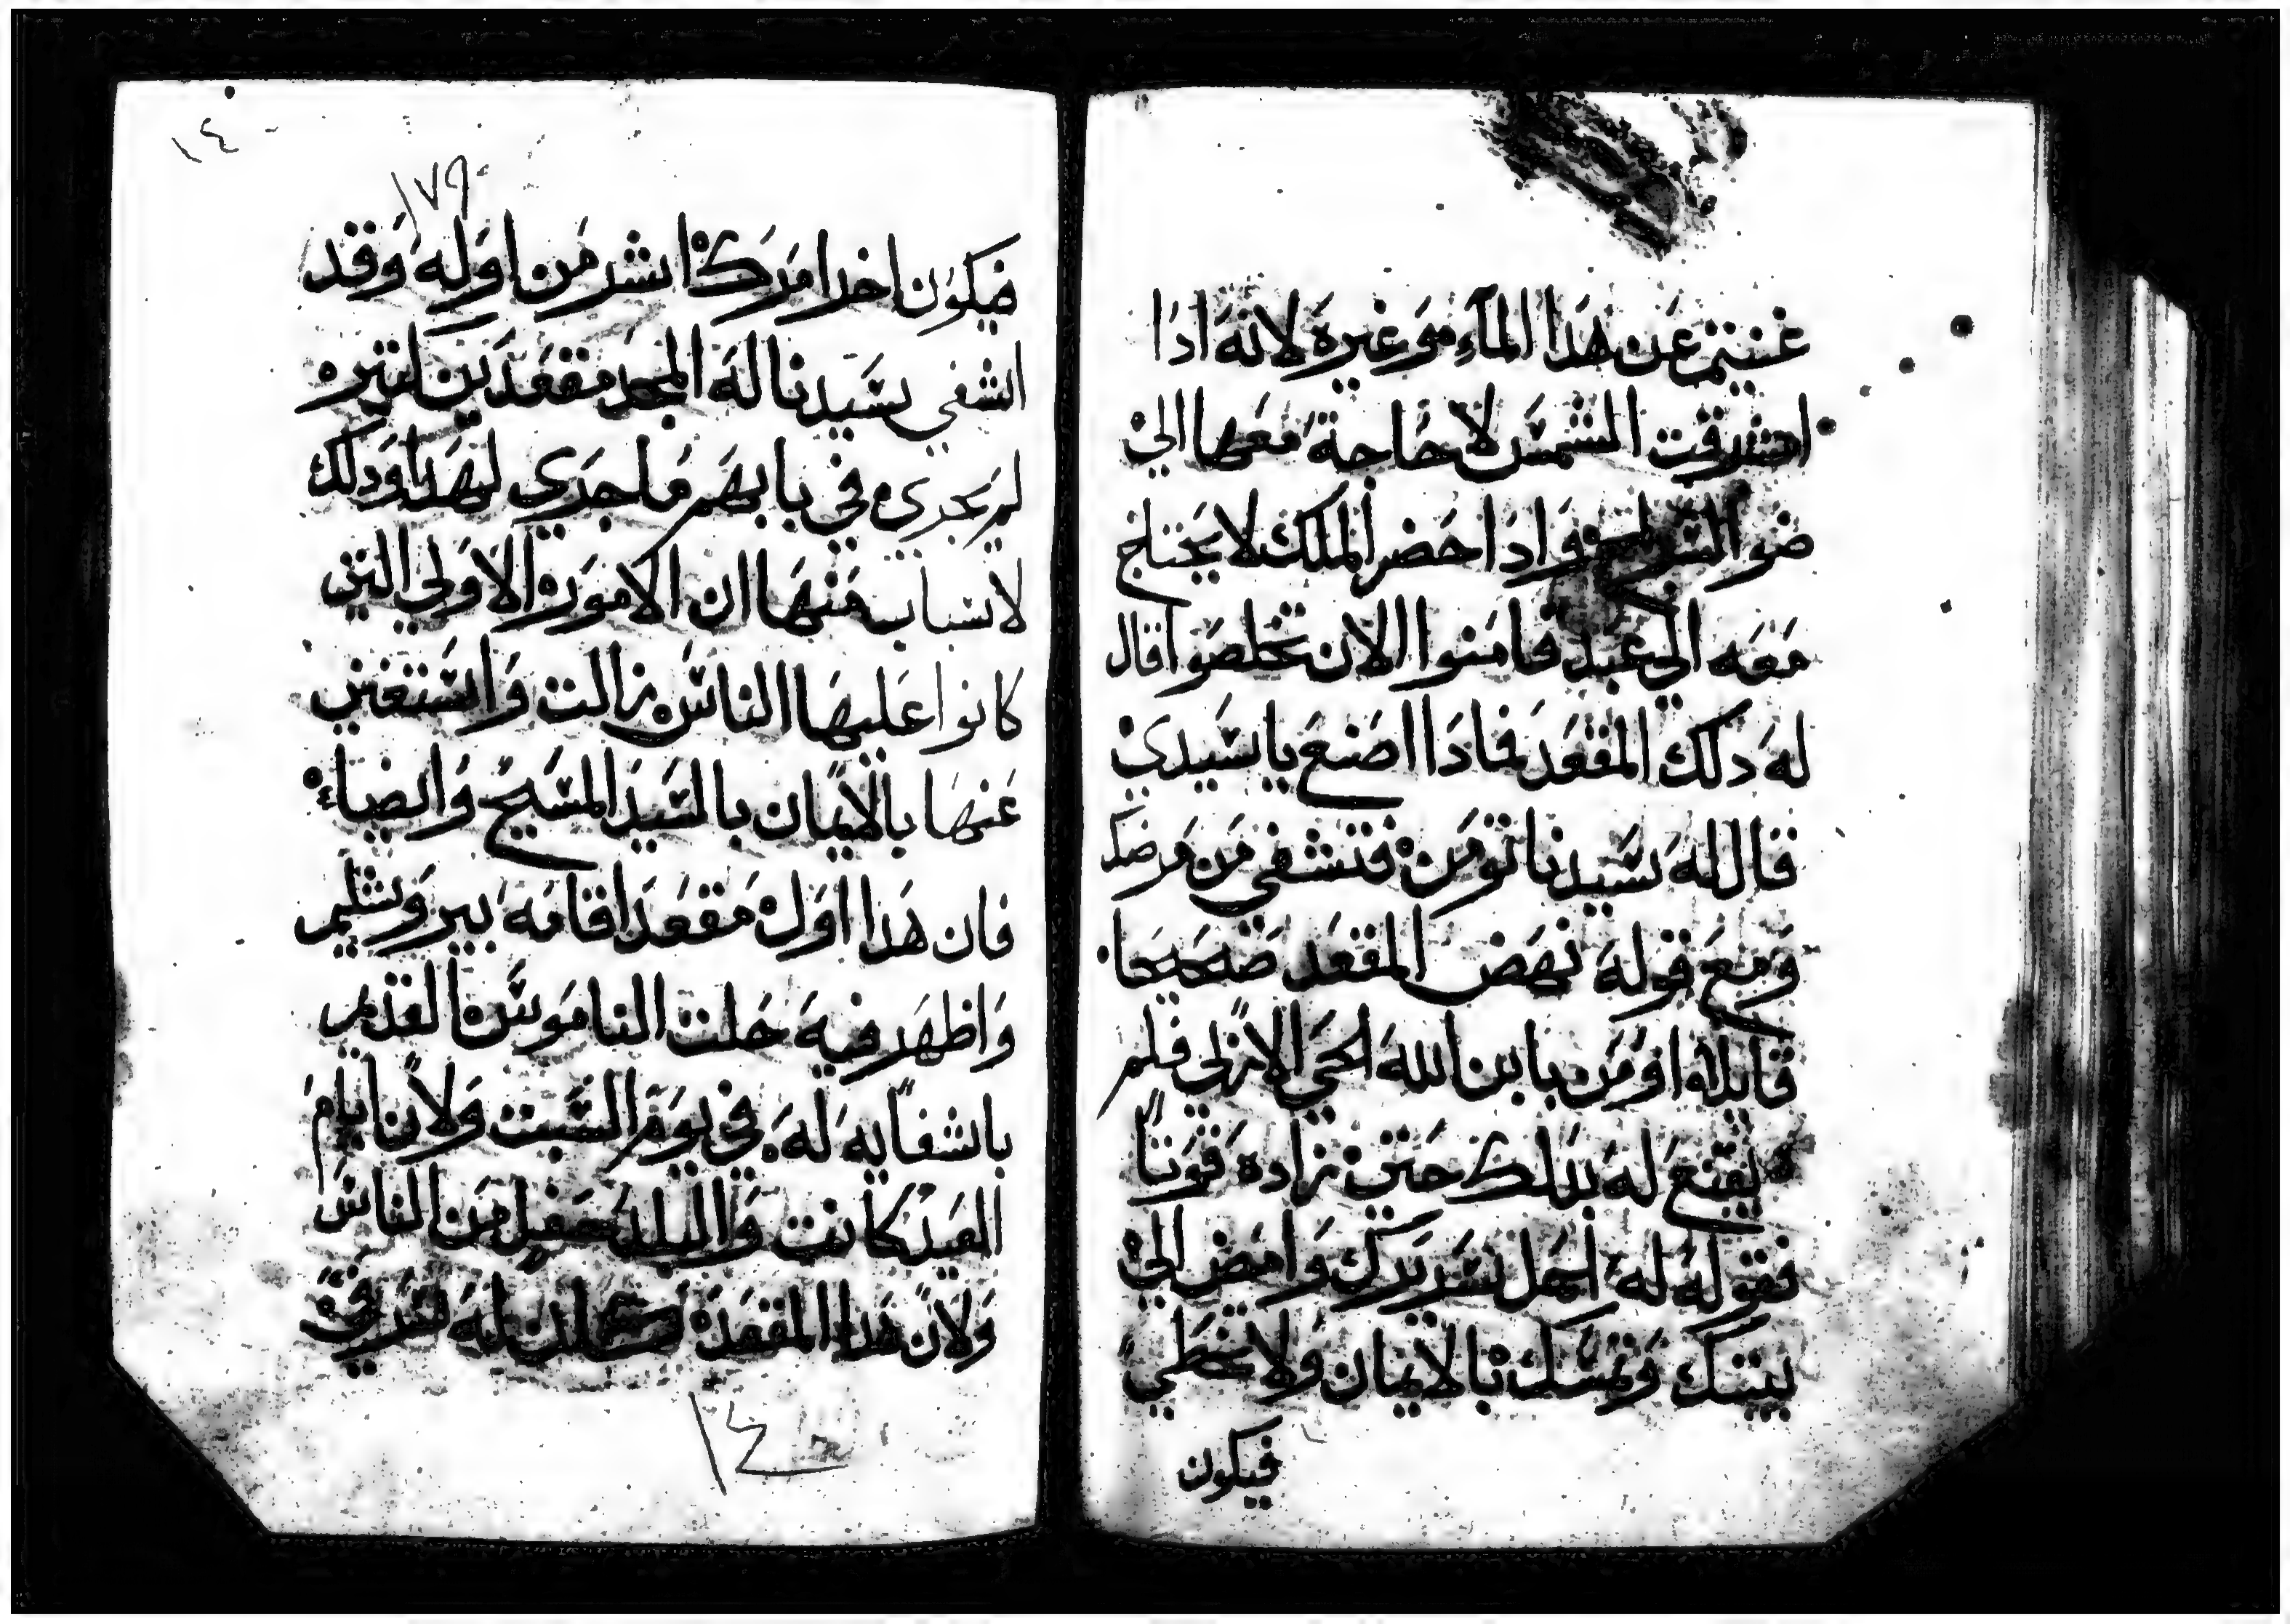 غنيتم عن هدا المآء مع غيره لانه ادا
اشرقت الشمس لا حاجة معها الي
ضو السراج وادا حضر الملك لا يحتاج
معه الي عبد فامنوا الان تخلصوا قال
له دلك المقعد فمادا اصنع يا سيدي
قال له سيدنا تومن فتشفي من مرضك
ومع قوله نهض المقعد صحيحا
قايلا اومن بابن الله الحي الازلي فلم
يقنع له بدلك حتي زاده قوتاً
فقوله له احمل سريرك وامض الي
بيتك وتمسك بالايمان ولا تخطي
فيكون
١٤
١٧٩
فيكون اخر امرك اشر من اوله وقد
اشفي سيدنا له المجد مقعدين لتيره
لم يجري في بابهم ما جري لهدا ودلك
لاسباب منها ان الامور الاولي التي
كانوا عليها الناس زالت واستغني
عنها بالايمان بالسيد المسيح وايضاء
فان هدا اول مقعد اقامه بيروشليم
واظهر فيه حلت الناموس القديم
باشفايه له في يوم السبت ولان ايام
العيد كانت والبلد محفل من الناس
ولان هدا المقعد كان له في
١٤